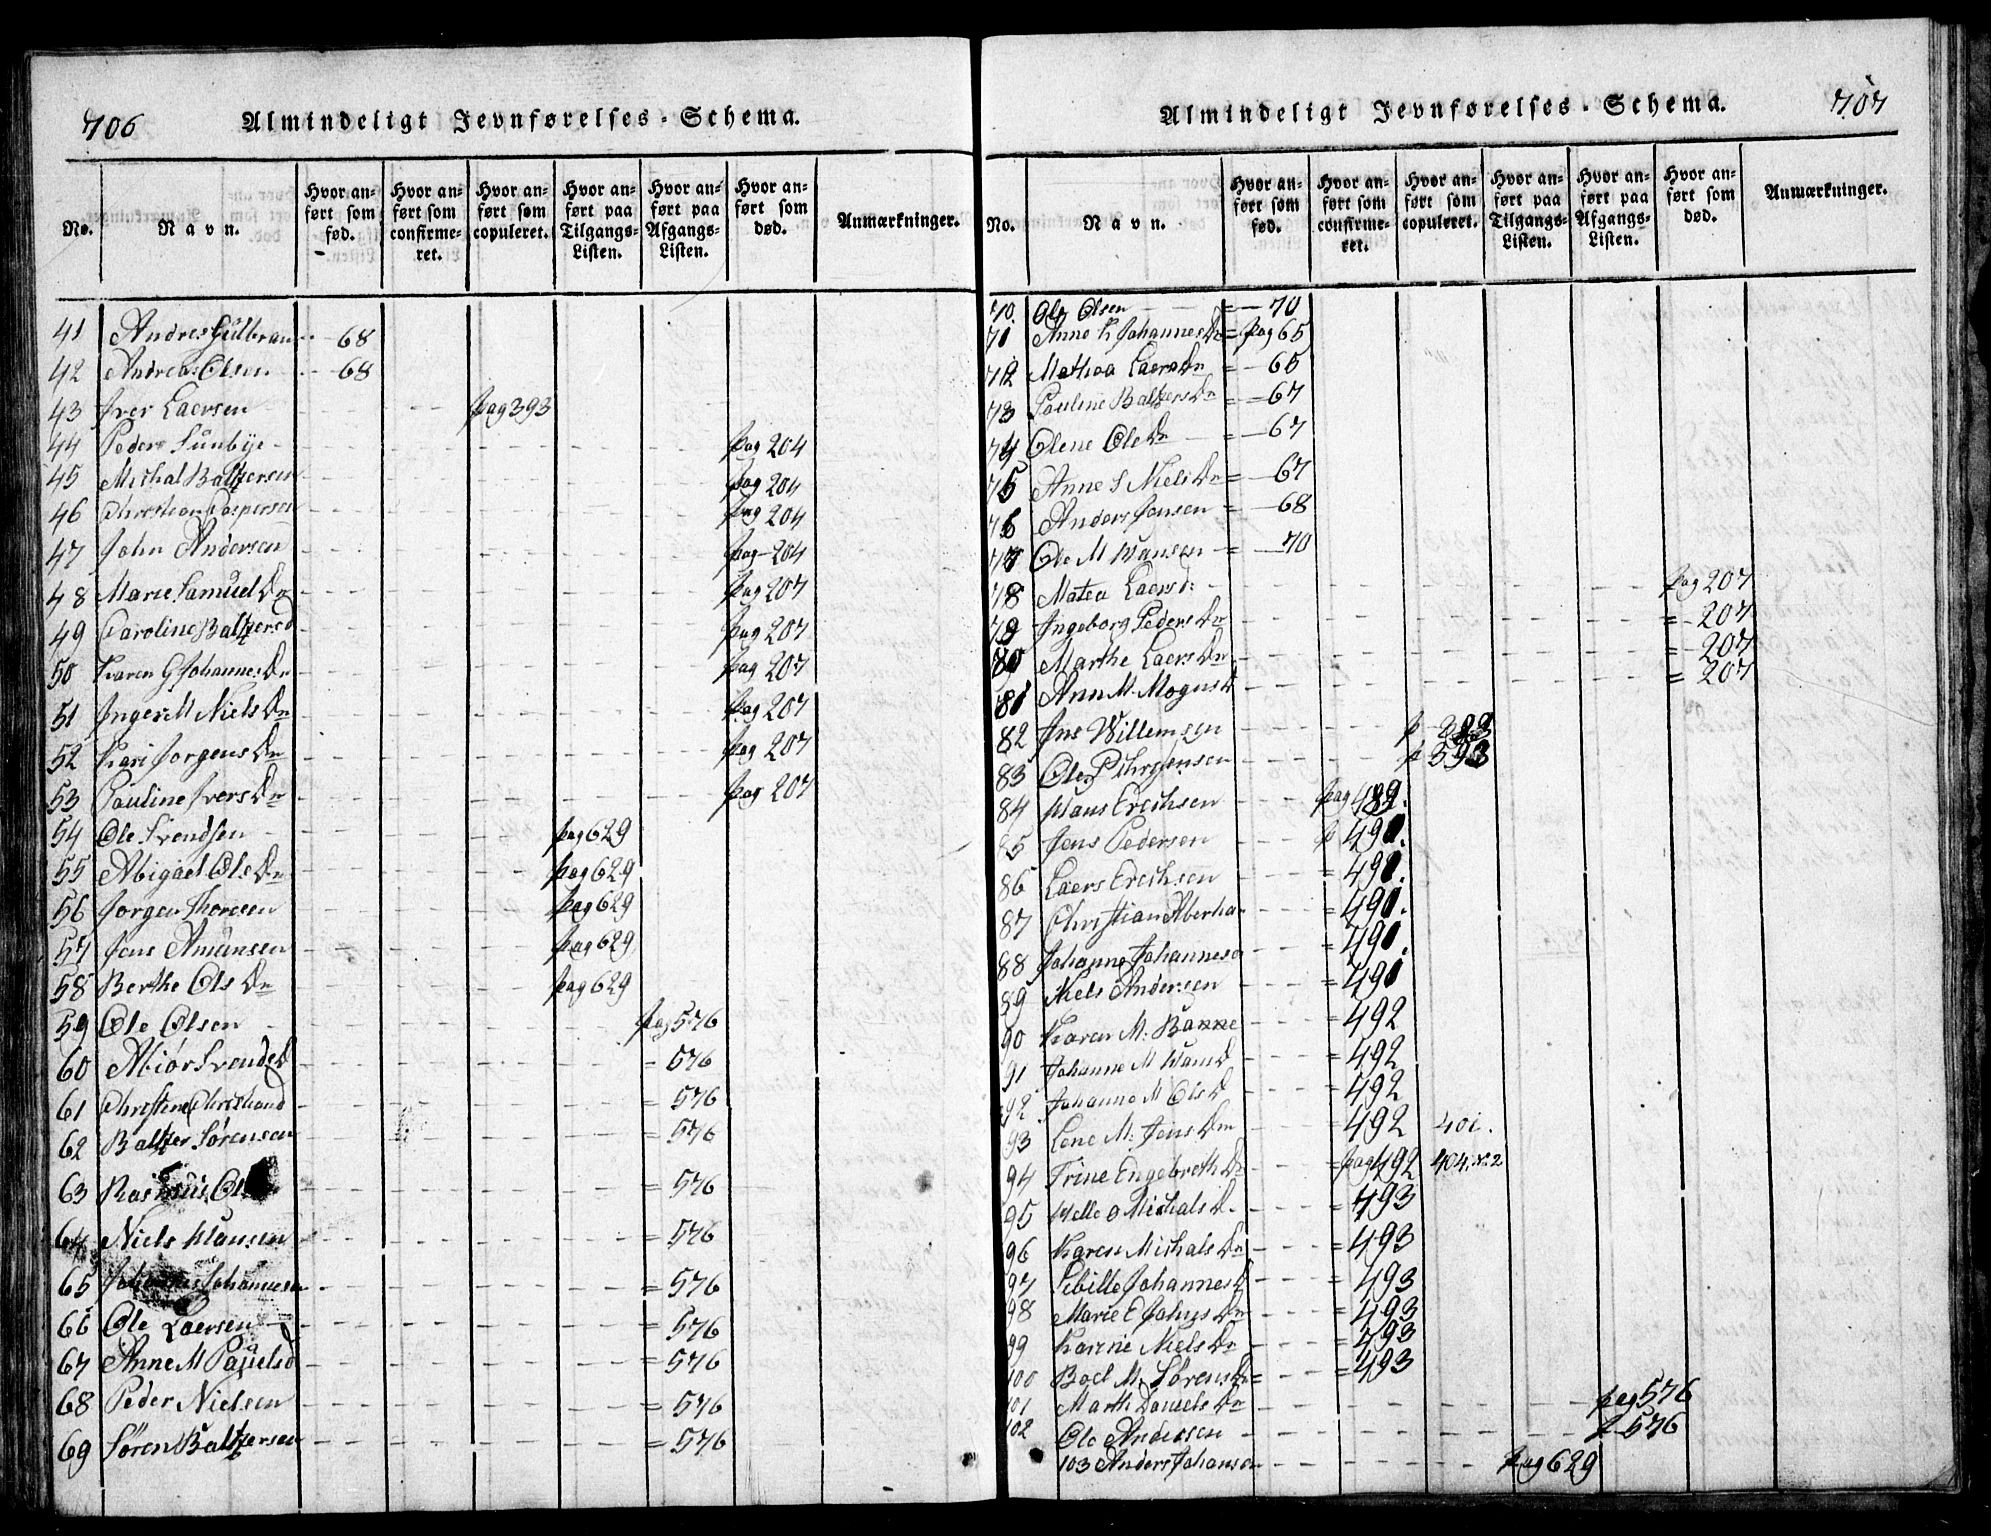 706
Almindeligt Jevnførelses-Schema.
No. Navn. Hvor anført som fød. Hvor anført som confirmeret. Hvor anført som copuleret. Hvor anført paa Tilgangs-Listen. Hvor anført paa Afgangs-Listen. Hvor anført som død. Anmærkninger.
41 Andres Gulbran 68
42 Andreas Olsen 68
43 Iver Laersen pag 393
44 Peder Sunbye pag 204
45 Michal Baltzersen pag 204
46 Christian Caspersen pag 204
47 John Andersen pag 204
48 Marie Samuel Dn pag 207
49 Caroline Baltzersd pag 207
50 Karen G Johannes Dn pag 207
51 Inger M Niels Dn pag 207
52 Kari Jorgens Dn pag 207
53 Pauline Ivers Dn pag 207
54 Ole Svendsen pag 629
55 Abigael Ols Dn pag 629
56 Jorgen Thoresen pag 629
57 Jens Amunsen pag 629
58 Berthe Ols Dn pag 629
59 Ole Olsen pag 576
60 Abior Svends D - 576
61 Christine Christiand 576
62 Baltzer Sørensen - 576
63 Rasmus = 576
64 Niels Hansen = 576
65 Johannes Johannesen = 576
66 Ole Laersen = 576
67 Anne M Pauelsd = 576
68 Peder Nielsen = 576
69 Søren Baltzersen = 576
707
Almindeligt Jevnførelses-Schema.
No. Navn. Hvor anført som fød. Hvor anført som confirmeret. Hvor anført som copuleret. Hvor anført paa Tilgangs-Listen. Hvor anført paa Afgangs-Listen. Hvor anført som død. Anmærkninger.
70. Ole Olsen = 70
71 Anne K Johannes Dn = pag 65
72 Mathea Laers Dn = 65
73 Pauline Baltzers Dn = 67
74 Olene Ole Dn = 67
75 Anne S Niels Dn = 67
76 Anders Jensen = 68
77 Ole M Hansen = 70
78 Matea Laersd: pag 207
79 Ingeborg Peders Dn = 207
80 Marthe Laers Dn = 207
81 Ann M. Mogns D = 207
82 Jns Willemsen p
83 Ole p 393
84 Hans Erichsen pag 489.
85 Jens Pedersen p 490.
86 Laers Erichsen = 490.
87 Christian Aberha = 490.
88 Johanne Johannesen = 490.
89 Niels Andersen = 490
90 Karen M: Banne = 492
91 Johanne M Hans D = 492
92 Johanne M Ols D = 492
93 Lene M: Jens Dn = 492 401.
94 Trine Engebreth D = pag 492 404. N. 2
95 Helle O Michals D = 493
96 Karen Michals Dn = 493
97 Sibille Johannes D = 493
98 Marie E Johns Dn = 493
99 Karine Niels Dn = 493
100 Boel M. Sørens Dn = 493
101 Marth Daniels Dn pag 576
102 Ole Andersen p 576
103 Anders Johansen pag 629